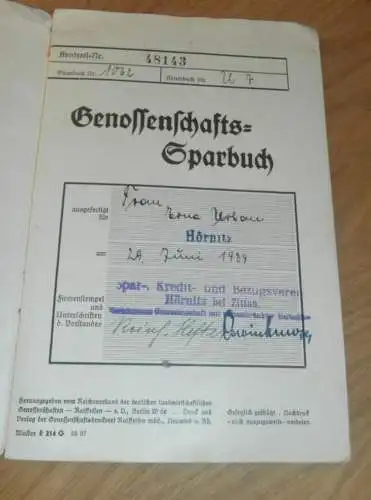 Kontroll-Nr. 48143
Sparbuch Nr. 1032 Kontobuch Nr. U 7
Genossenschafts-
Sparbuch
ausgefertigt für Frau
Erna Urban
Hörnitz
am 29. Juni 1939
Spar-, Kredit- und Bezugsverein
Hörnitz bei Zittau
Firmenstempel
und
Unterschriften
d. Vorstandes
Herausgegeben vom Reichsverband der deutschen landwirtschaftlichen
Genossenschaften — Raiffeisen — e. V., Berlin W Druck und
Verlag der Genossenschaftsdruckerei Raiffeisen mbH., Neuwied a. Rh.
Gesetzlich geschützt. Nachdruck
auch auszugsweise verboten
Muster E 214 G